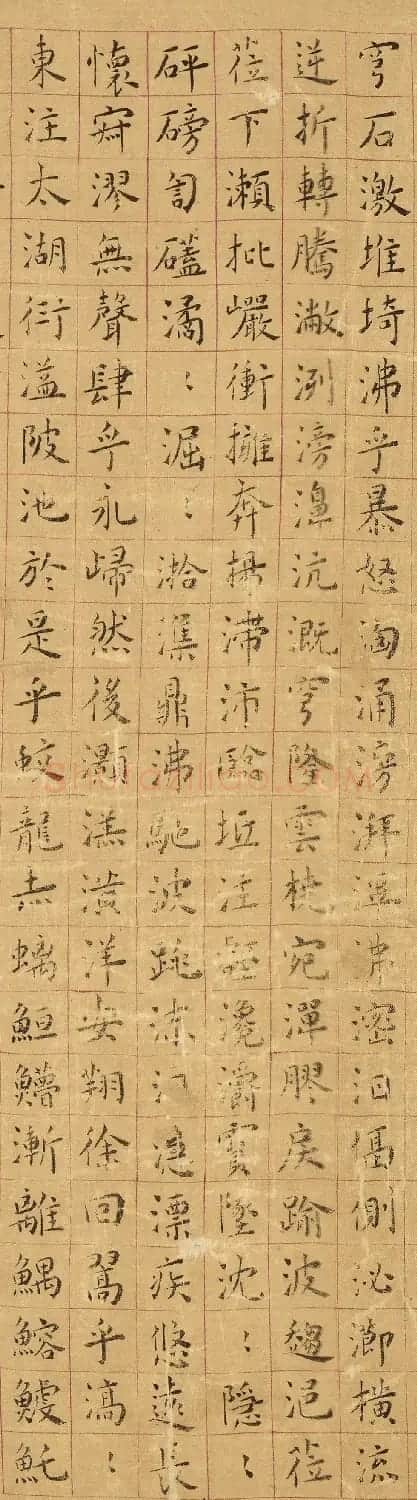 穹石激堆埼沸乎暴怒洶涌滂湃滭沸滵汩偪側泌瀄橫流
逆折轉騰潎洌滂濞沆溉穹隆雲橈宛潬膠戾踰波趨浥莅
莅下瀨批巖衝擁奔揚滯沛臨坻注壑瀺灂霣墜沈〻隱〻
砰磅訇礚潏〻淈〻湁潗鼎沸馳波跳沫汩㴔漂疾悠遠長
懷寂漻無聲肆乎永歸然後灝溔潢洋安翔徐回翯乎滈〻
東注太湖衍溢陂池於是乎蛟龍赤螭䱎䲛漸離鰅鰫鰬魠